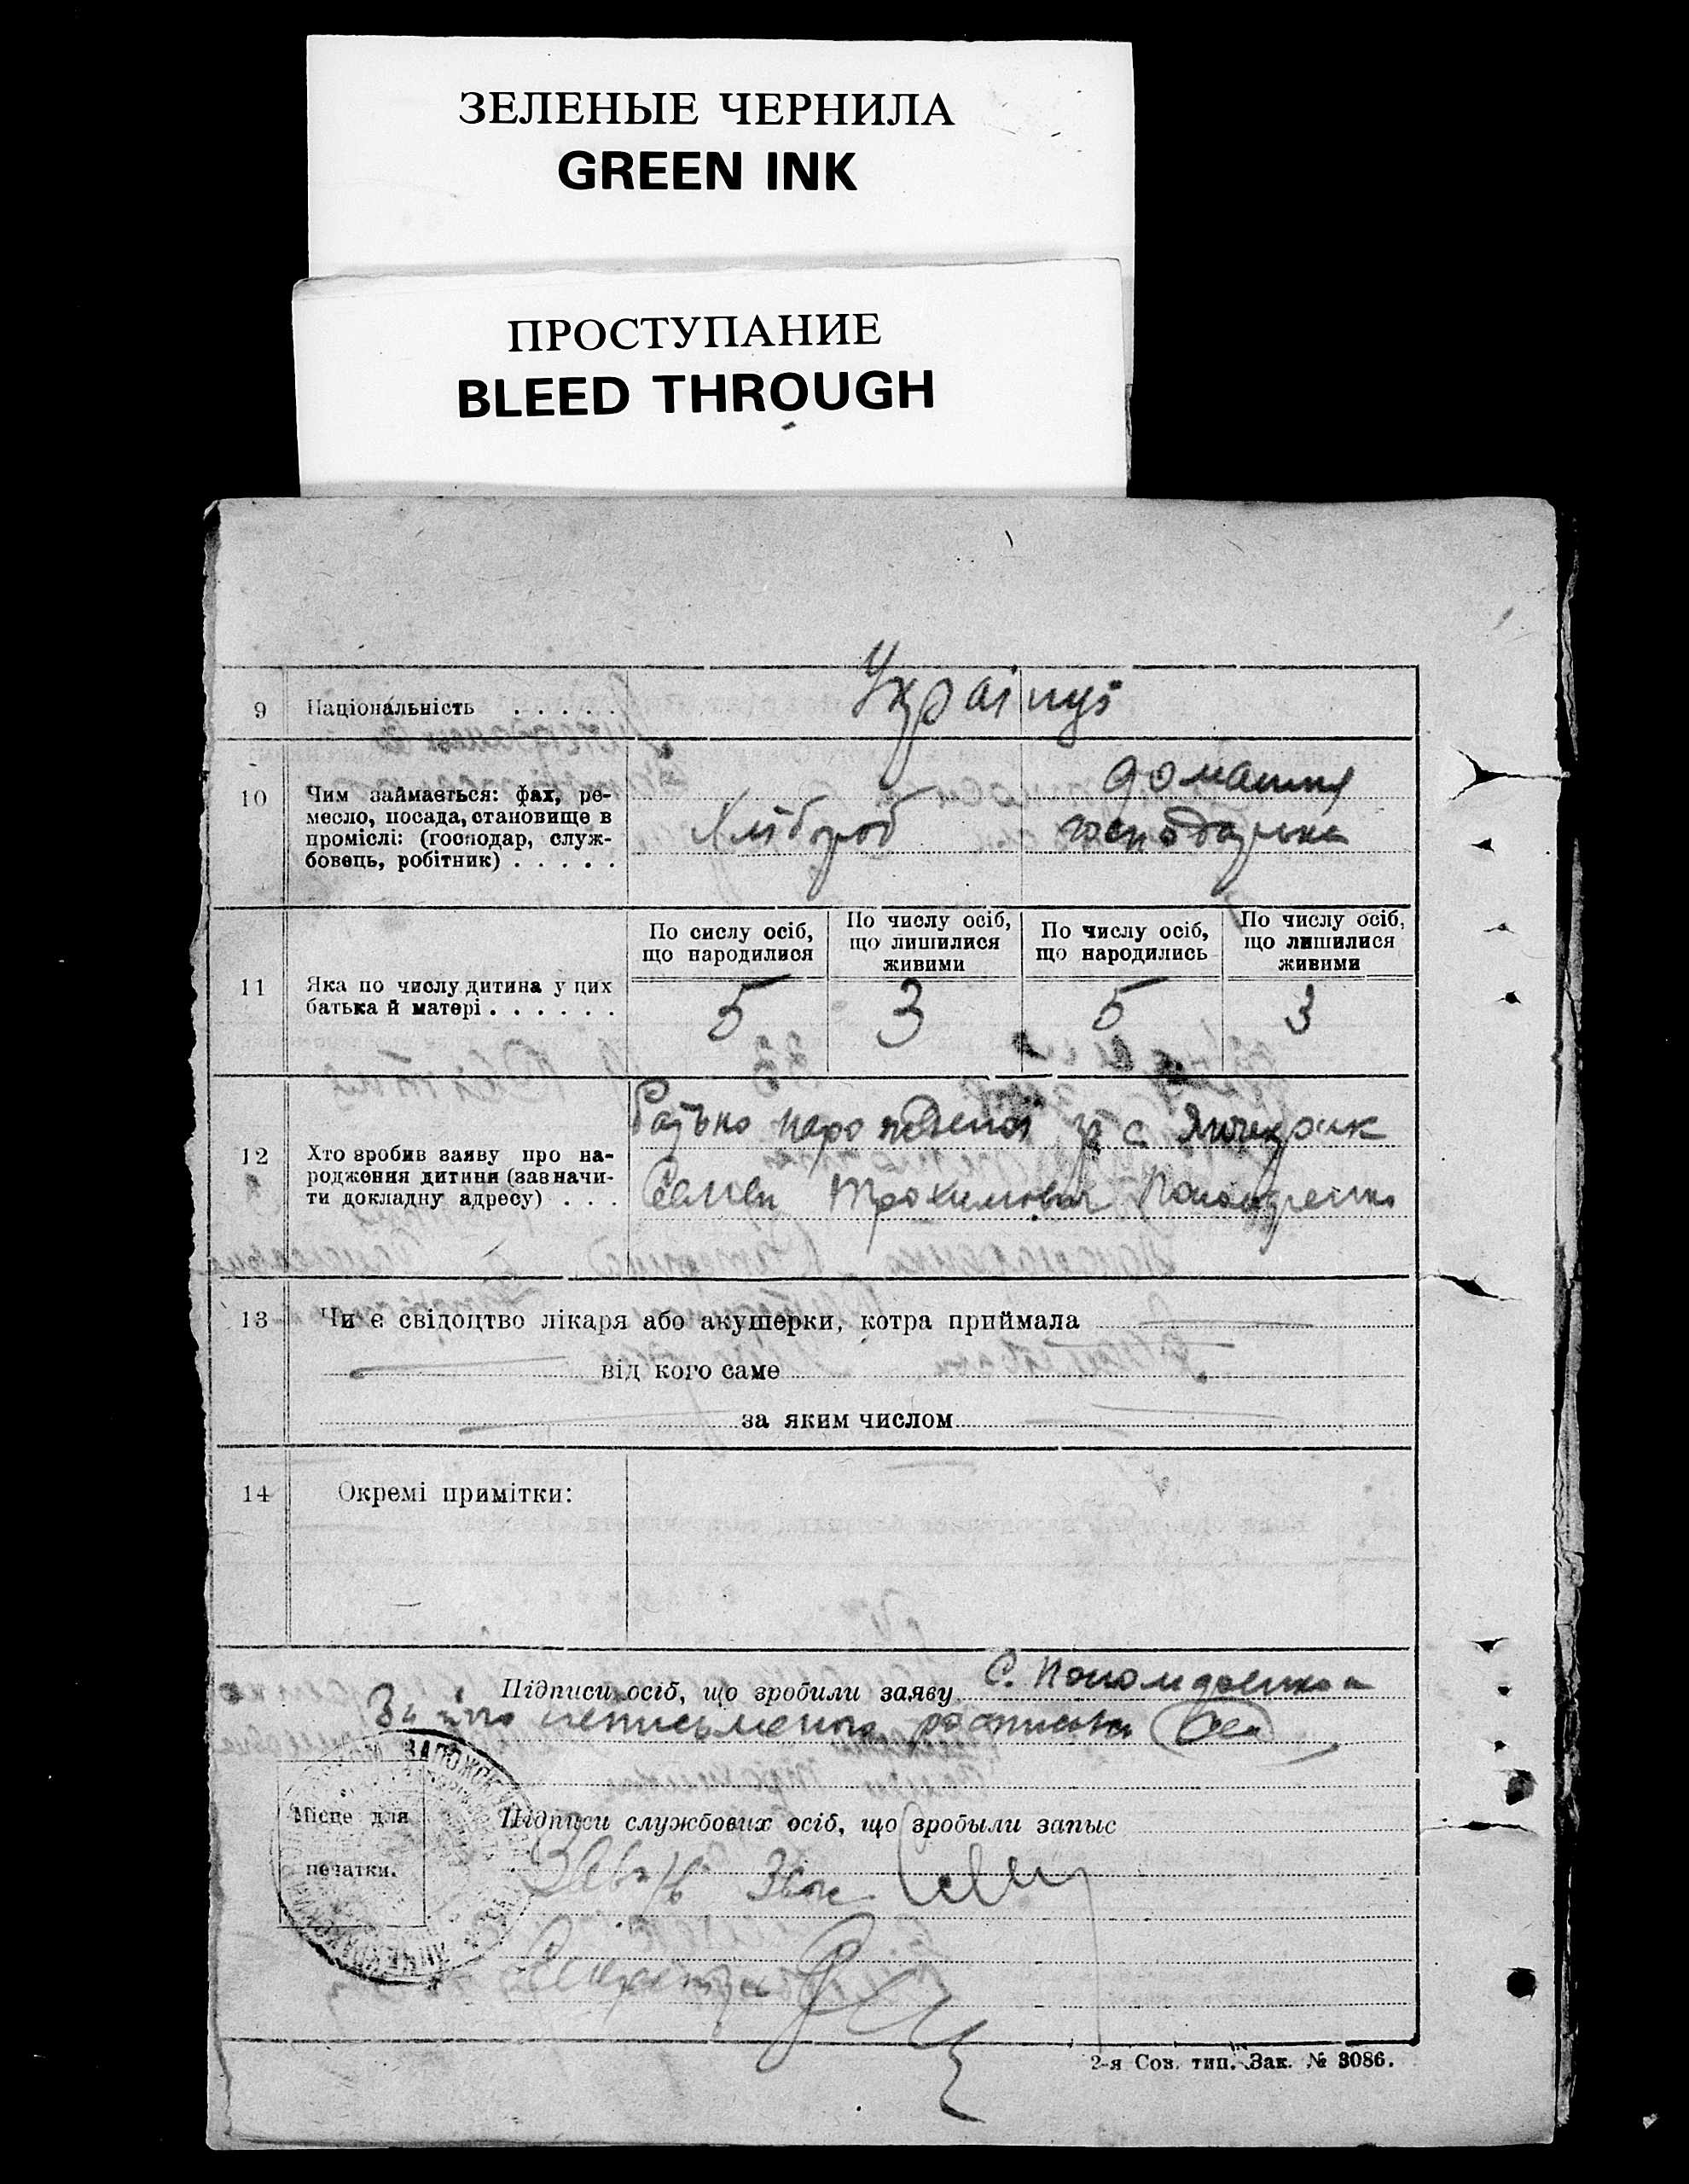 ЗЕЛЕНЫЕ ЧЕРНИЛА
GREEN INK
ПРОСТУПАНИЕ
BLEED THROUGH
9 Національність . . . . .
Українці
10 Чим займається: фах, ре-
месло, посада, становище в
проміслі: (господар, служ-
бовець, робітник) . . . . .
Хлібороб
домашня
господарка
11 Яка по числу дитина у цих
батька й матері . . . . . .
По сислу осіб,
що народилися
5
По числу осіб,
що лишилися
живими
3
По числу осіб,
що народились
5
По числу осіб,
що лишилися
живими
3
12 Хто зробив заяву про на-
родження дитини (зазначи-
ти докладну адресу) . . .
Батько народженої с. Янчекрак
Семен Трохимович Пономаренко
13 Чи є свідоцтво лікаря або акушерки, котра приймала
від кого саме
за яким числом
14 Окремі примітки:
Підписи осіб, що зробили заяву С. Пономаренко
За його неписьменого росписався
Місце для
печатки.
Підписи службових осіб, що зробыли запыс
Секретар
2-я Сов. тип. Зак. № 3086.